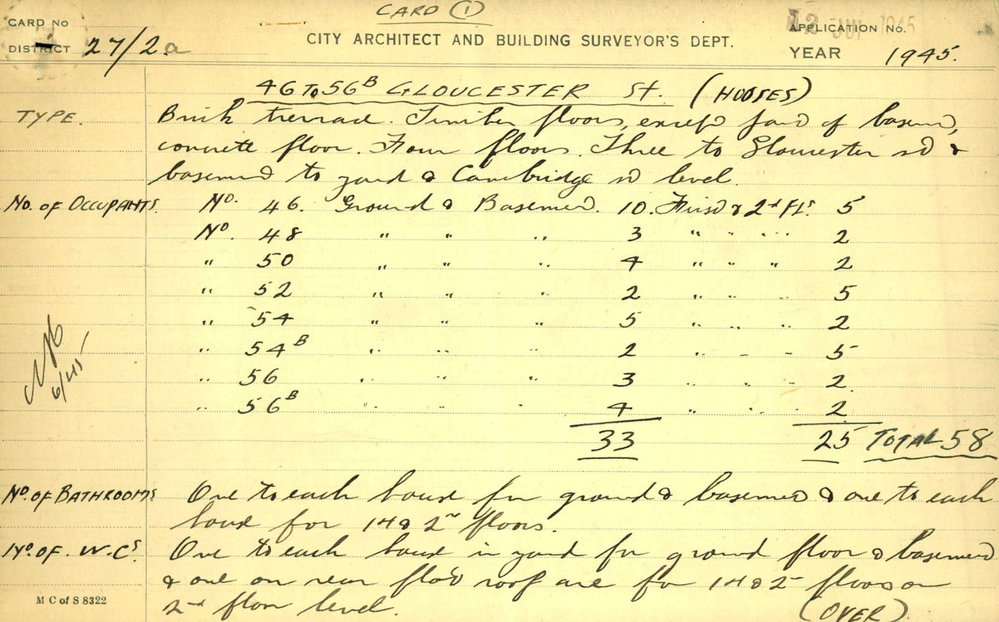 CARD (1)
CARD No
DISTRICT 27/2a
CITY ARCHITECT AND BUILDING SURVEYOR'S DEPT.
APPLICATION No.
YEAR 1945.
46 To 56B GLOUCESTER St. (HOUSES)
TYPE. Brick terrace. Timber floors, except part of basem,
concrete floor. Four floors. Three to Gloucester st &
basement to yard & Cambridge st level.
No. OF OCCUPANTS. No. 46. Ground & Basement. 10. First & 2nd Fls. 5
No. 48 " " " 3 " " " 2
" 50 " " " 4 " " " 2
" 52 " " " 2 " " " 5
" 54 " " " 5 " " " 2
" 54B " " " 2 " " " 5
" 56 " " " 3 " " " 2
" 56B " " " 4 " " " 2
33 25 TOTAL 58
6/45
No. OF BATHROOMS One to each house for ground & basement & one to each
house for 1st & 2nd floors.
No. OF W.Cs. One to each house in yard for ground floor & basement
& one on rear flat roof are for 1st & 2 floors on
2nd floor level.
(OVER)
M C of S 8322